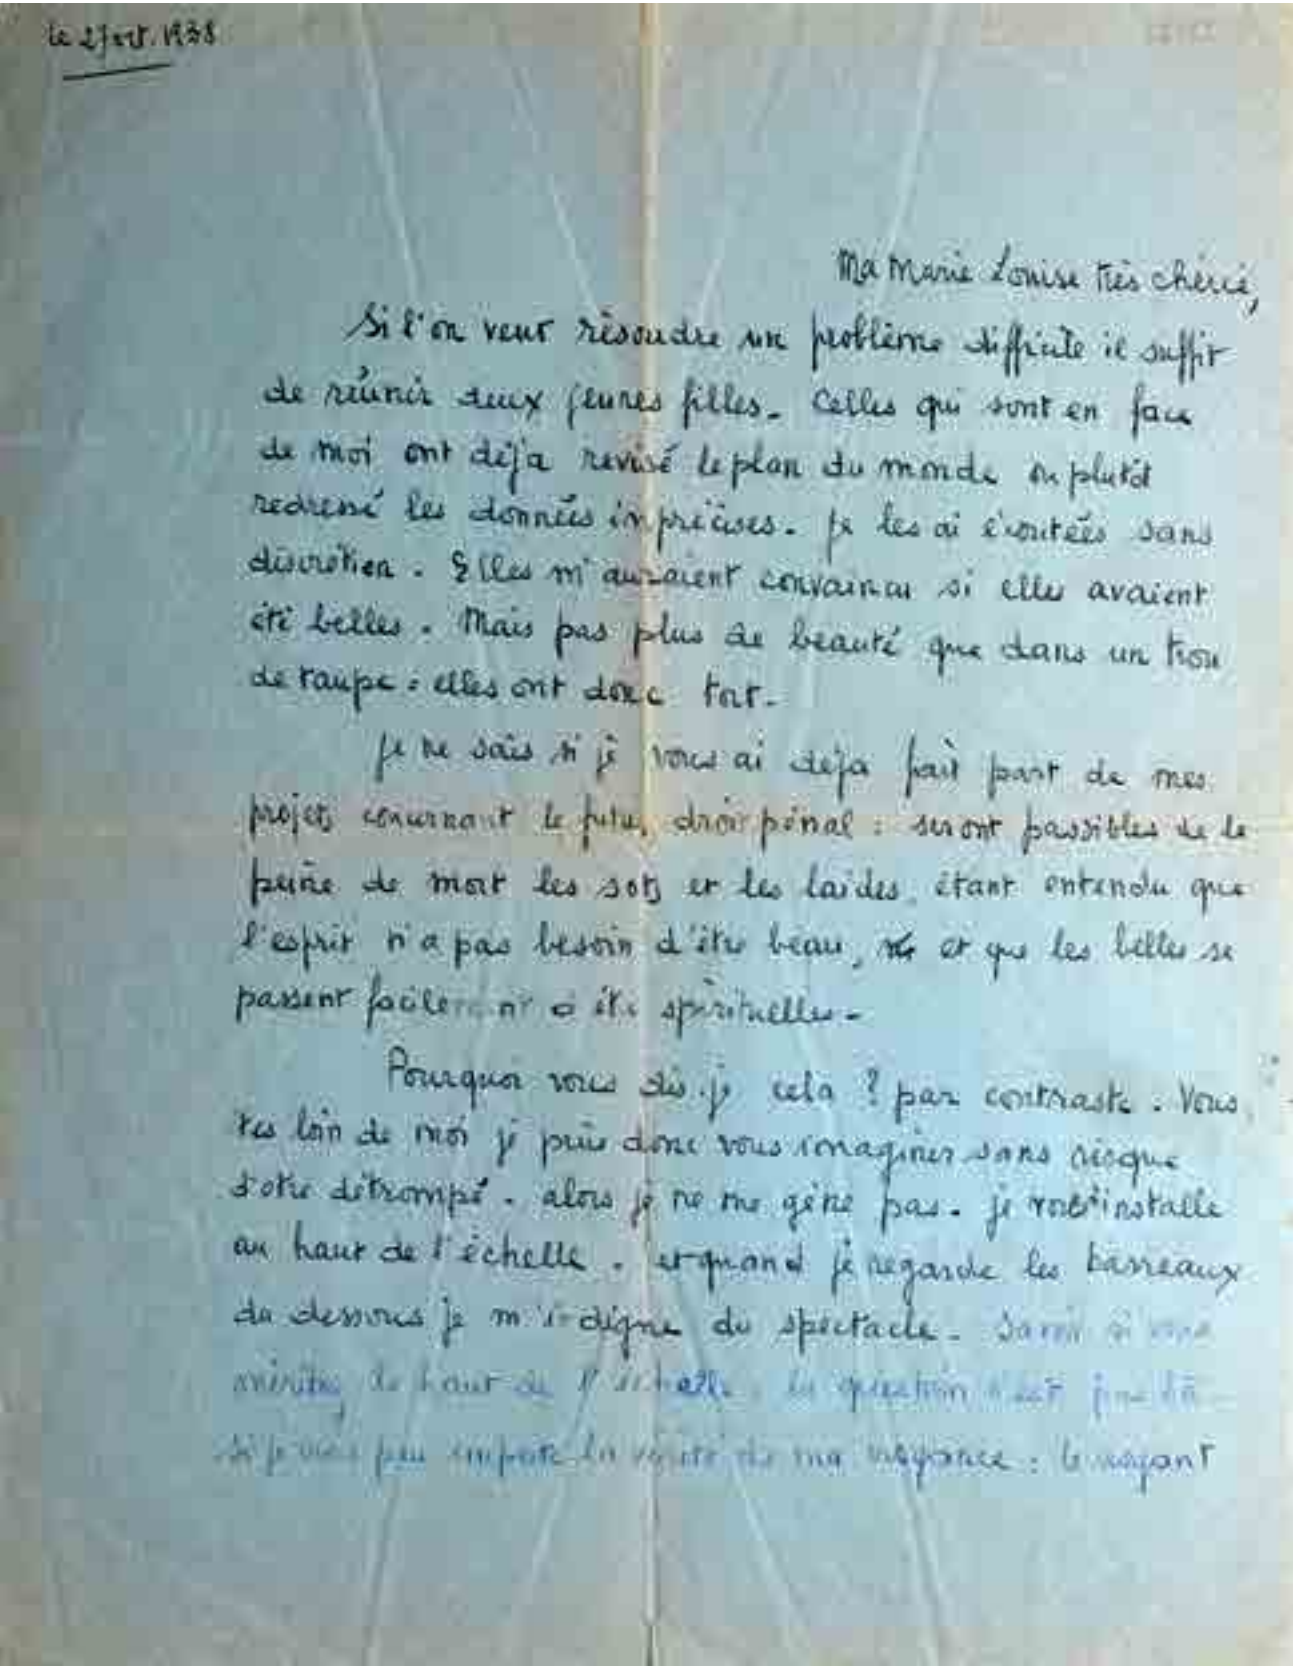 le 27 oct. 1938
Ma Marie Louise très chérie,
Si l'on veut résoudre un problème difficile il suffit
de réunir deux jeunes filles. Celles qui sont en face
de moi ont déja revisé le plan du monde ou plutôt
redressé les données imprécises. Je les ai écoutées sans
discrétion. Elles m'auraient convaincu si elles avaient
été belles. Mais pas plus de beauté que dans un trou
de taupe : elles ont donc tort.
Je ne sais si je vous ai déja fait part de mes
projets concernant le futur droit pénal : seront passibles de la
peine de mort les sots et les laides, étant entendu que
l'esprit n'a pas besoin d'être beau, et que les belles se
passent facilement d'être spirituelles.
Pourquoi vous dis-je cela ? par contraste. Vous
êtes loin de moi je puis donc vous imaginer sans risque
d'être détrompé. alors je ne me gêne pas. je vous installe
au haut de l'échelle. et quand je regarde les barreaux
du dessous je m'indigne du spectacle. Savoir si vous
méritez le haut de l'échelle, la question n'est pas là.
Si je vois peu importe la vérité de ma voyance : le voyant